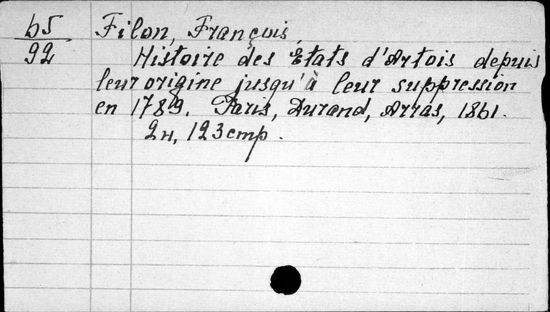 65
92
Filon, François,
Histoire des Etats d'Artois depuis
leur origine jusqu'à leur suppression
en 1789. Paris, Durand, Arras, 1861.
2н, 123стр.